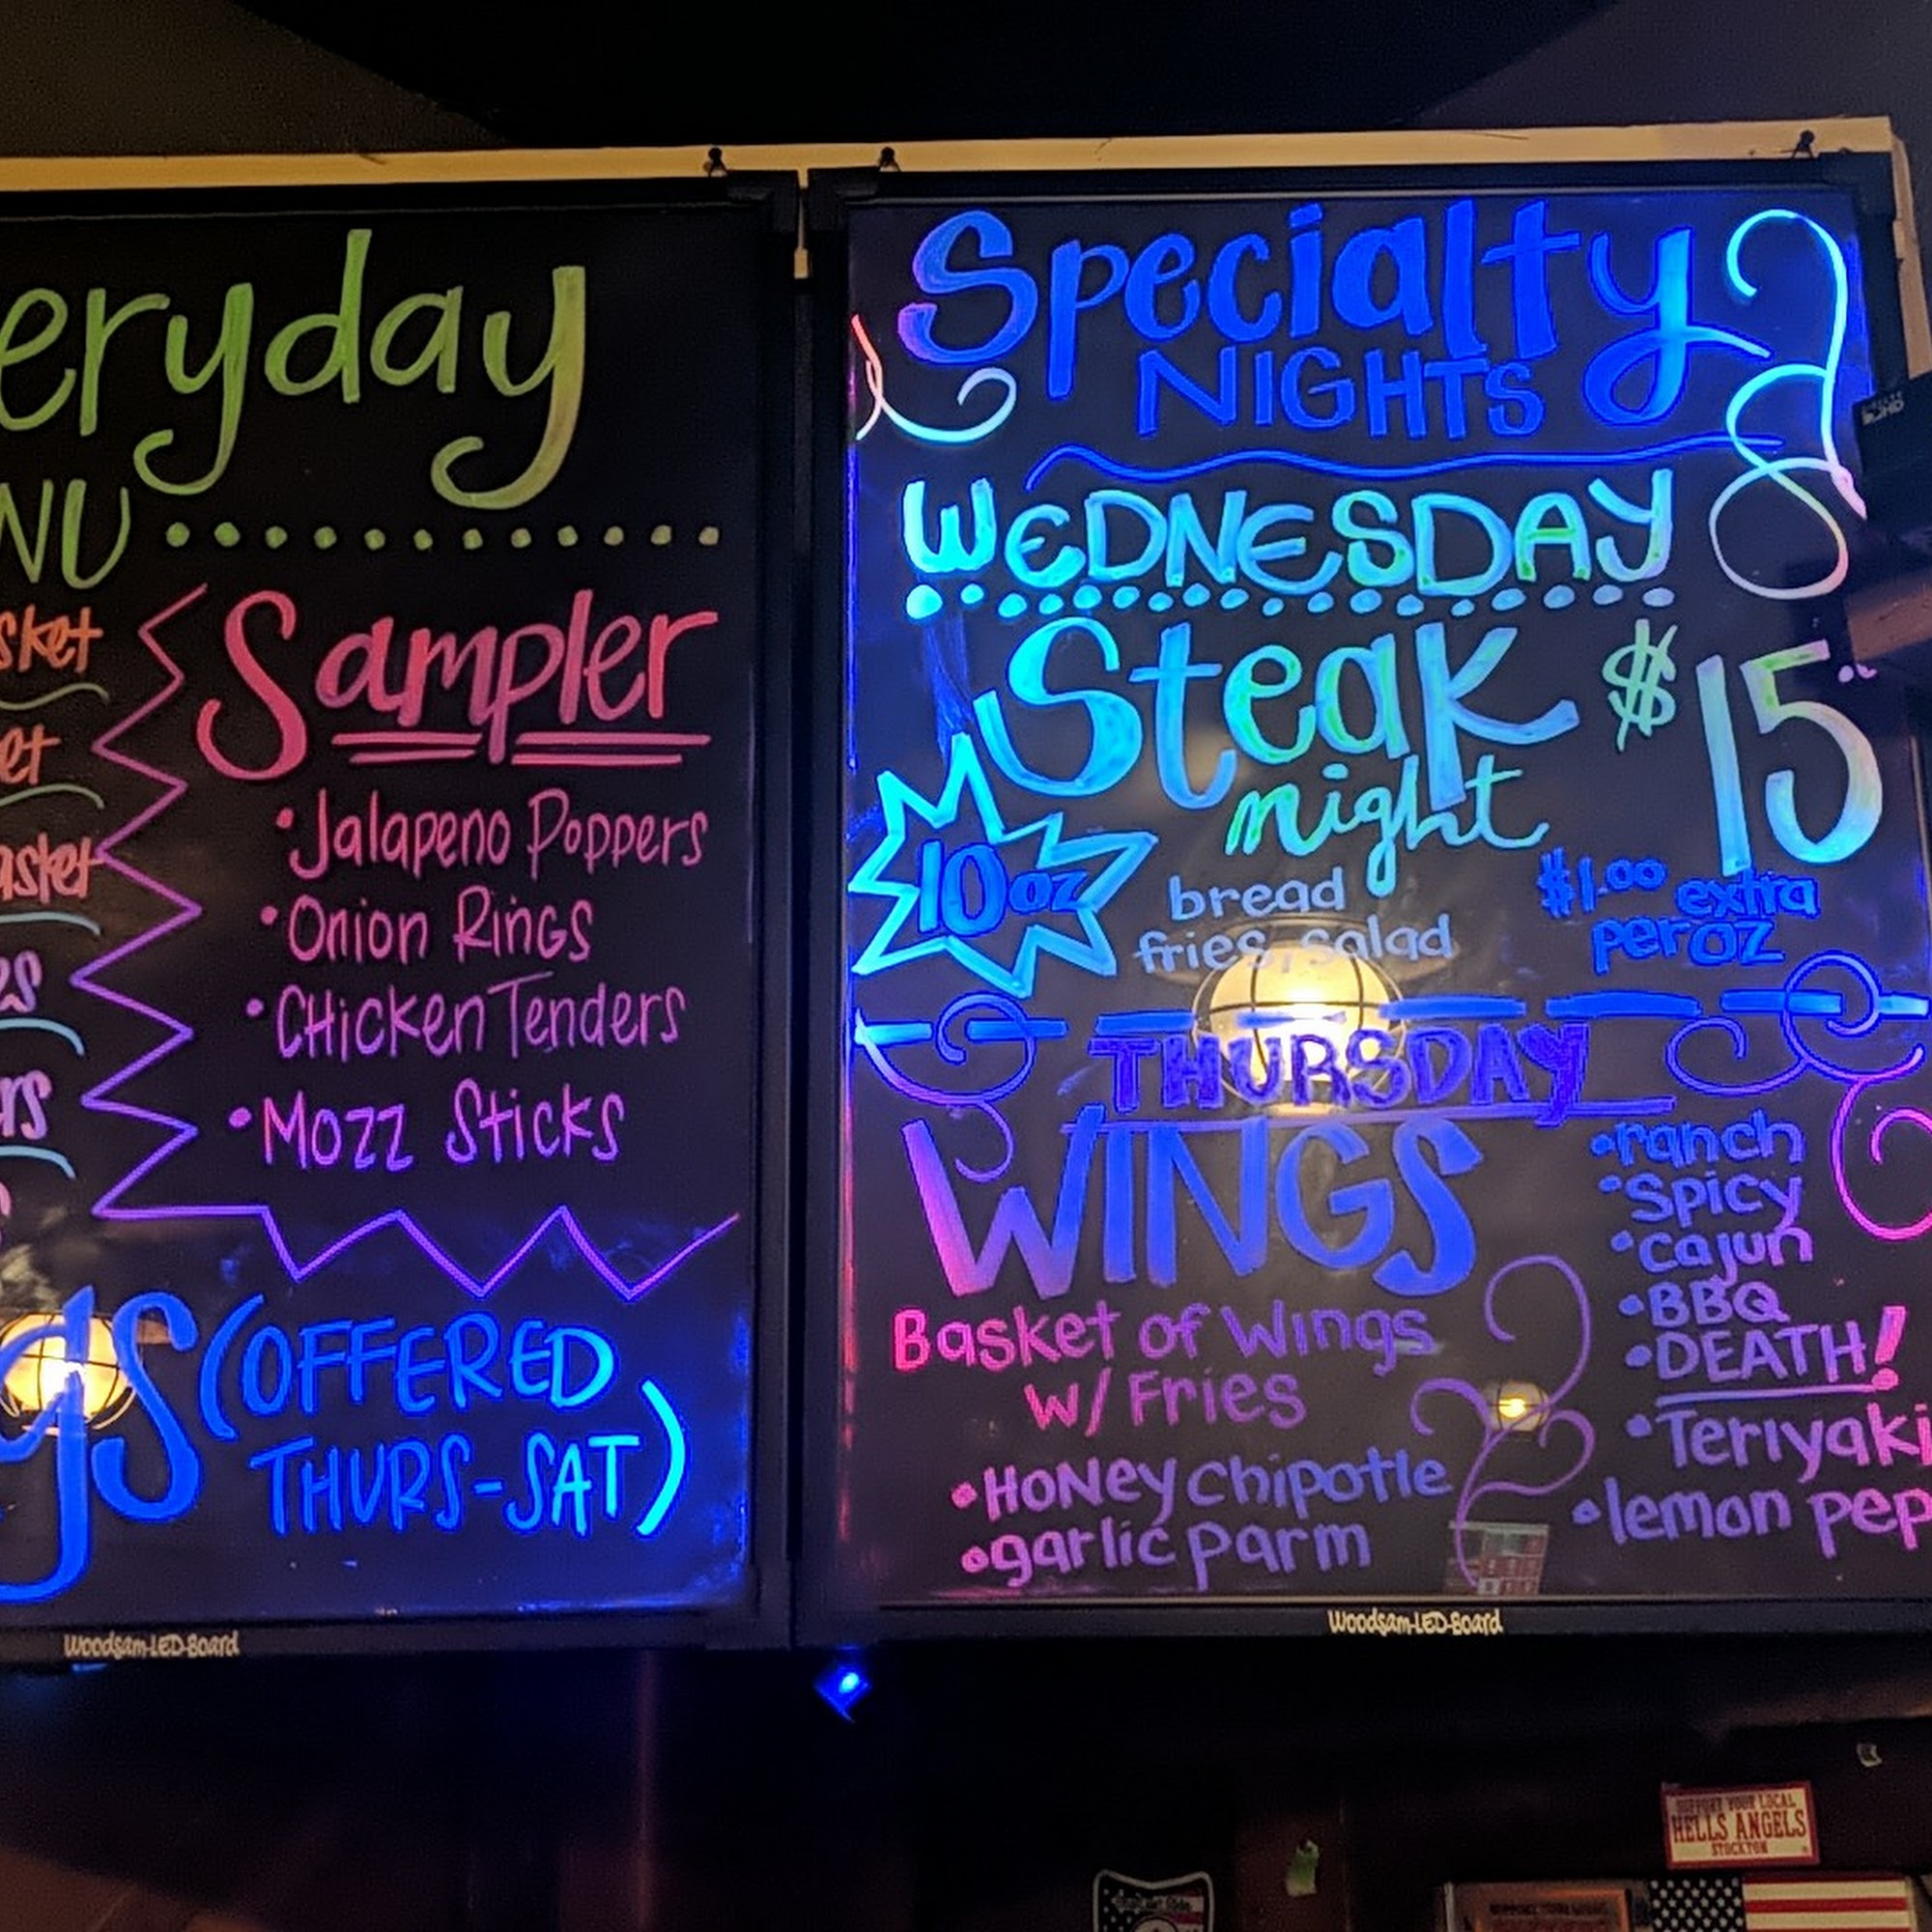 eryday
NU
sket
et
asket
es
ers
Sampler
• Jalapeno Poppers
• Onion Rings
• Chicken Tenders
• Mozz Sticks
gs (OFFERED
THURS-SAT)
Woodsam-LED-Board
Specialty
NIGHTS
WEDNESDAY
Steak $15
night
10oz
bread
fries, salad
$1.00 extra
per oz
THURSDAY
WINGS
Basket of Wings
w/ Fries
• Honey Chipotle
• garlic parm
• ranch
• Spicy
• Cajun
• BBQ
• DEATH!
• Teriyaki
• lemon pep
Woodsam-LED-Board
SUPPORT YOUR LOCAL
HELLS ANGELS
STOCKTON